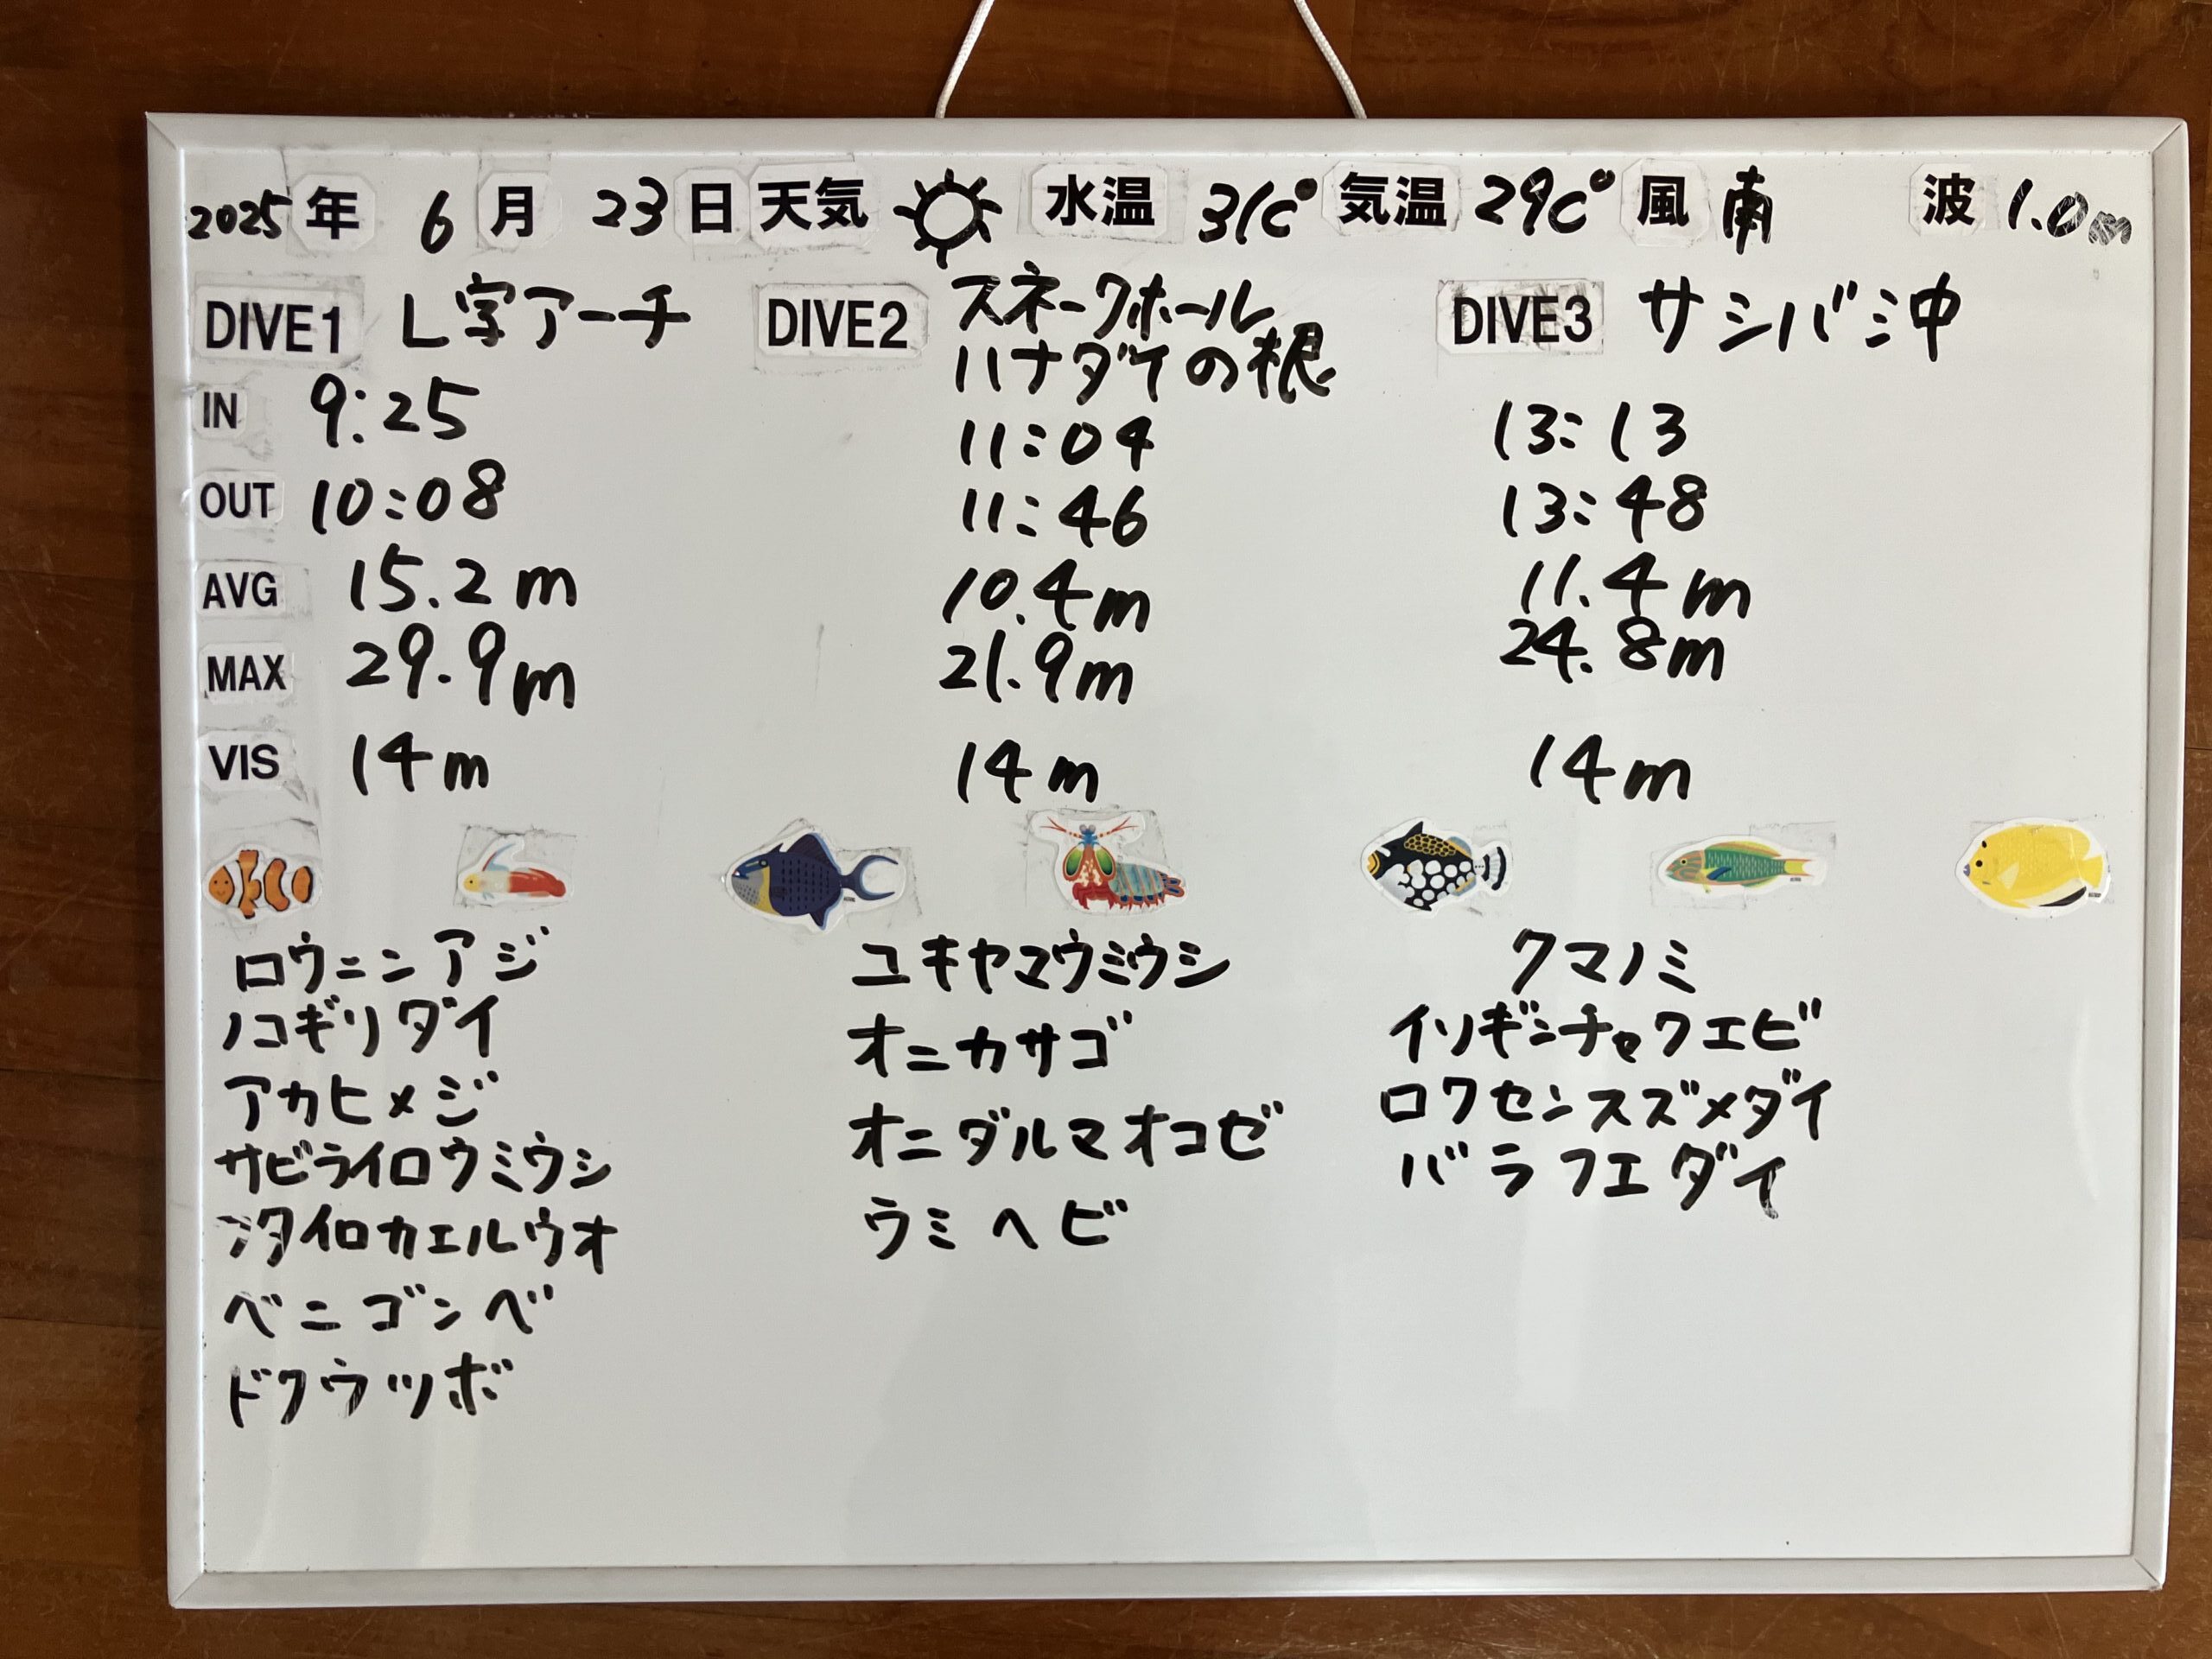 2025年 6月 23日 天気 水温 31c° 気温 29c° 風 南 波 1.0m
DIVE1 L字アーチ DIVE2 スネークホール DIVE3 サシバ沖
ハナダイの根
IN 9:25 11:04 13:13
OUT 10:08 11:46 13:48
AVG 15.2m 10.4m 11.4m
MAX 29.9m 21.9m 24.8m
VIS 14m 14m 14m
ロウニンアジ ユキヤマウミウシ クマノミ
ノコギリダイ オニカサゴ イソギンチャクエビ
アカヒメジ オニダルマオコゼ ロクセンスズメダイ
サビライロウミウシ ウミヘビ バラフエダイ
シタイロカエルウオ
ベニゴンベ
ドクウツボ